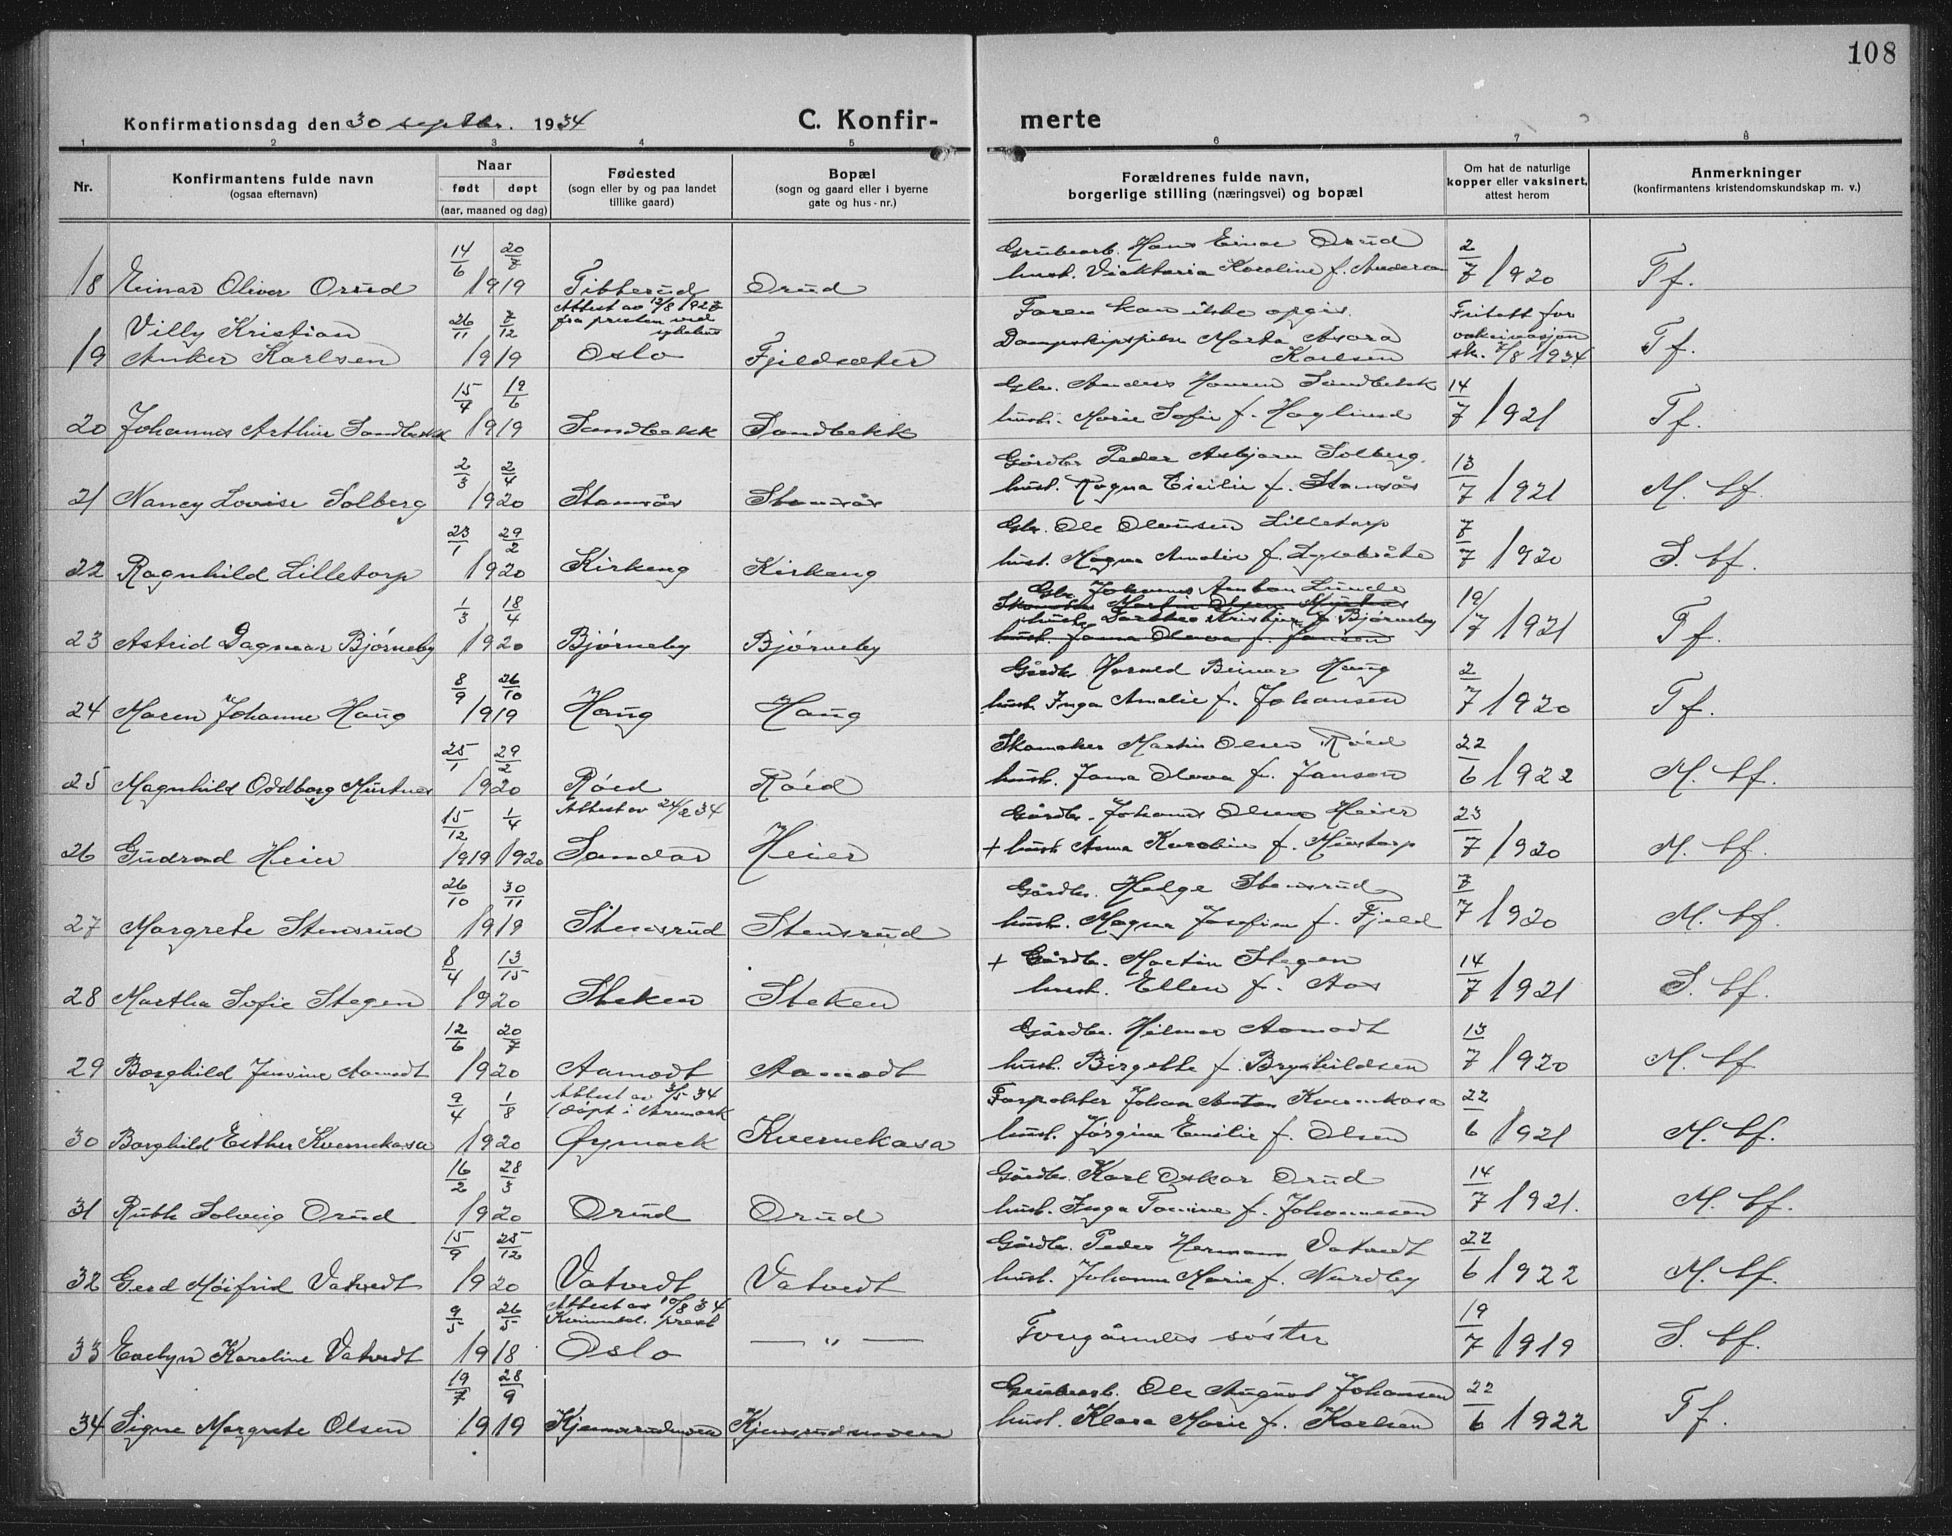 108
Konfirmationsdag den 30 septbr. 1934
C. Konfir- merte
1 2 3 4 5 6 7 8
Nr.
Konfirmantens fulde navn
(ogsaa efternavn)
Naar
født døpt
(aar, maaned og dag)
Fødested
(sogn eller by og paa landet
tillike gaard)
Bopæl
(sogn og gaard eller i byerne
gate og hus-nr.)
Forældrenes fulde navn,
borgerlige stilling (næringsvei) og bopæl
Om hat de naturlige
kopper eller vaksinert,
attest herom
Anmerkninger
(konfirmantens kristendomskundskap m. v.)
14/6 20/7 Grubearb. Hans Einar Orud 2/7
18 Einar Oliver Orud 1919 Tibberud Orud hust. Vicktoria Karoline f. Andersen 1920 T f.
Attest av 12/8 1927
fra presten ved
sykehus
Villy Kristian 26/11 7/12 Faren kan ikke opgis. Fritatt for
19 Anker Karlsen 1919 Oslo Fjeldsæter Marta Asora vaksinasjon T f.
Karlsen sk. 7/8 1934
15/4 19/6 Gbr. Anders Hansen Sandbekk 14/7
20 Johannes Arthur Sandbekk 1919 Sandbekk Sandbekk hust. Marie Sofie f. Haglund 1921 T f.
2/3 2/4 Gårdbr. Peder Asbjørn Solberg. 13/7
21 Nancy Lovise Solberg 1920 Stamsås Stamsås hust. Ragna Cicilie f. Stamsås 1921 M. tf.
23/1 29/2 Gbr. Ole Olausen Lilletorp 7/7
22 Ragnhild Lilletorp 1920 Kirkeng Kirkeng hust. Magna Amalie f. 1920 S. tf.
Gbr. Johannes Anton Lunde
1/3 18/4 Skomaker Martin Olsen 19/7
hust. Dorthea Kristine f. Bjørneby
23 Astrid Dagmar Bjørneby 1920 Bjørneby Bjørneby hust. Jama Olava f. Janson 1921 T f.
8/9 26/10 Gårdbr. Harald Beinar Haug 2/7
24 Maren Johanne Haug 1919 Haug Haug hust. Inga Amalie f. Johansen 1920 T f.
25/1 29/2 Skomaker Martin Olsen Røed 22/6
25 Magnhild Oddborg 1920 Røed Røed hust. Jama Olava f. Janson 1922 M. tf.
15/12 1/4 Attest av 24/2 34 Gårdbr. Johannes Olsen Heier 23/7
26 Gudrund Heier 1919 1920 Sandar Heier + hust. Anna Karoline f. 1920 M. tf.
26/10 30/11 Gårdbr. Helge Stensrud 7/7
27 Margrete Stensrud 1919 Stensrud Stensrud hust. Magna Josefine f. Fjeld 1920 M. tf.
8/4 13/15 + Gårdbr. Martin Stegen 14/7
28 Martha Sofie Stegen 1920 Steken Steken hust. Ellen f. Aas 1921 S. tf.
12/6 20/7 Gårdbr. Hilmar Aamodt 13/7
29 Borghild Jensine Aamodt 1920 Aamodt Aamodt hust. Birgitte f. Brynhildsen 1920 M. tf.
Attest av 3/5 34
9/4 1/8 (døpt i Aremark Forpakter Johan Anton Kvernekasa 22/6
30 Borghild Esther Kvernekasa 1920 Øymark Kvernekasa hust. Jørgine Emilie f. Olsen 1921 M. tf.
16/2 28/3 Gårdbr. Karl Oskar Orud 14/7
31 Ruth Solveig Orud 1920 Orud Orud hust. Inga Tomine f. Johannesen 1921. M. tf.
15/9 25/12 Gårdbr. Peder Hermann Vatvedt 22/6
32 Gerd Møifrid Vatvedt 1920 Vatvedt Vatvedt hust. Johanne Marie f. Nordby 1922 M. tf.
Attest av 10/8 34
9/5 26/5 prest 19/7
33 Evelyn Karoline Vatvedt 1918 Oslo — „ — Foregåendes søster 1919 S. tf.
19/7 28/9 Grubearb. Ole August Johansen 22/6
34 Signe Margrete Olsen 1919 Kjensrudmoen Kjensrudmoen hust. Klara Marie f. Karlsen 1922 T f.